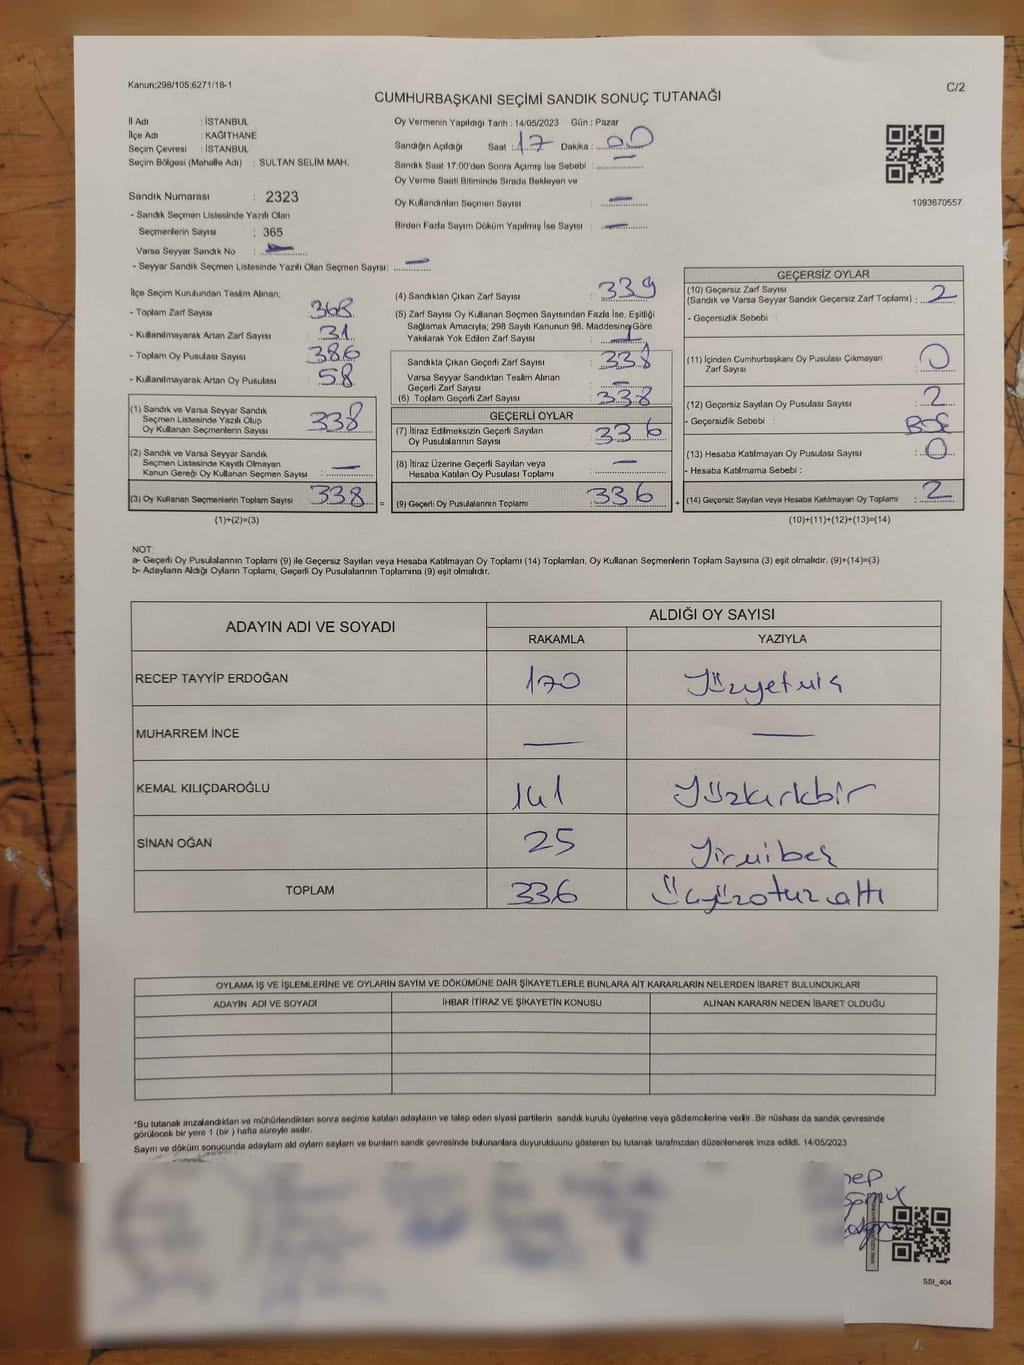 Kanun;298/105;6271/18-1
C/2
CUMHURBAŞKANI SEÇİMİ SANDIK SONUÇ TUTANAĞI
İl Adı : İSTANBUL
İlçe Adı : KAĞITHANE
Seçim Çevresi : İSTANBUL
Seçim Bölgesi (Mahalle Adı) : SULTAN SELİM MAH.
Sandık Numarası : 2323
- Sandık Seçmen Listesinde Yazılı Olan
Seçmenlerin Sayısı : 365
Varsa Seyyar Sandık No : —
- Seyyar Sandık Seçmen Listesinde Yazılı Olan Seçmen Sayısı: —
Oy Vermenin Yapıldığı Tarih : 14/05/2023 Gün : Pazar
Sandığın Açıldığı Saat : 17 Dakika : 00
Sandık Saat 17:00'den Sonra Açımış İse Sebebi : —
Oy Verme Saati Bitiminde Sırada Bekleyen ve
Oy Kullandırılan Seçmen Sayısı : —
Birden Fazla Sayım Döküm Yapılmış İse Sayısı : —
1093670557
İlçe Seçim Kurulundan Teslim Alınan;
- Toplam Zarf Sayısı : 368
- Kullanılmayarak Artan Zarf Sayısı : 31
- Toplam Oy Pusulası Sayısı : 386
- Kullanılmayarak Artan Oy Pusulası : 58
(1) Sandık ve Varsa Seyyar Sandık
Seçmen Listesinde Yazılı Olup
Oy Kullanan Seçmenlerin Sayısı : 338
(2) Sandık ve Varsa Seyyar Sandık
Seçmen Listesinde Kayıtlı Olmayan
Kanun Gereği Oy Kullanan Seçmen Sayısı : —
(3) Oy Kullanan Seçmenlerin Toplam Sayısı : 338 =
(1)+(2)=(3)
(4) Sandıktan Çıkan Zarf Sayısı : 339
(5) Zarf Sayısı Oy Kullanan Seçmen Sayısından Fazla İse, Eşitliği
Sağlamak Amacıyla; 298 Sayılı Kanunun 98. Maddesine Göre
Yakılarak Yok Edilen Zarf Sayısı : 1
Sandıkta Çıkan Geçerli Zarf Sayısı : 338
Varsa Seyyar Sandıktan Teslim Alınan
Geçerli Zarf Sayısı : —
(6) Toplam Geçerli Zarf Sayısı : 338
GEÇERLİ OYLAR
(7) İtiraz Edilmeksizin Geçerli Sayılan
Oy Pusulalarının Sayısı : 336
(8) İtiraz Üzerine Geçerli Sayılan veya
Hesaba Katılan Oy Pusulası Toplamı : —
(9) Geçerli Oy Pusulalarının Toplamı : 336 +
GEÇERSİZ OYLAR
(10) Geçersiz Zarf Sayısı
(Sandık ve Varsa Seyyar Sandık Geçersiz Zarf Toplamı) : 2
- Geçersizlik Sebebi :
(11) İçinden Cumhurbaşkanı Oy Pusulası Çıkmayan
Zarf Sayısı : 0
(12) Geçersiz Sayılan Oy Pusulası Sayısı : 2
- Geçersizlik Sebebi : BOŞ
(13) Hesaba Katılmayan Oy Pusulası Sayısı : 0
- Hesaba Katılmama Sebebi :
(14) Geçersiz Sayılan veya Hesaba Katılmayan Oy Toplamı : 2
(10)+(11)+(12)+(13)=(14)
NOT:
a- Geçerli Oy Pusulalarının Toplamı (9) ile Geçersiz Sayılan veya Hesaba Katılmayan Oy Toplamı (14) Toplamları, Oy Kullanan Seçmenlerin Toplam Sayısına (3) eşit olmalıdır. (9)+(14)=(3)
b- Adayların Aldığı Oyların Toplamı, Geçerli Oy Pusulalarının Toplamına (9) eşit olmalıdır.
ADAYIN ADI VE SOYADI ALDIĞI OY SAYISI
RAKAMLA YAZIYLA
RECEP TAYYİP ERDOĞAN 170 Yüzyetmiş
MUHARREM İNCE — —
KEMAL KILIÇDAROĞLU 141 Yüzkırkbir
SİNAN OĞAN 25 Yirmibeş
TOPLAM 336 Üçyüzotuzaltı
OYLAMA İŞ VE İŞLEMLERİNE VE OYLARIN SAYIM VE DÖKÜMÜNE DAİR ŞİKAYETLERLE BUNLARA AİT KARARLARIN NELERDEN İBARET BULUNDUKLARI
ADAYIN ADI VE SOYADI İHBAR İTİRAZ VE ŞİKAYETİN KONUSU ALINAN KARARIN NEDEN İBARET OLDUĞU
*Bu tutanak imzalandıktan ve mühürlendikten sonra seçime katılan adayların ve talep eden siyasi partilerin sandık kurulu üyelerine veya gözlemcilerine verilir. Bir nüshası da sandık çevresinde
görülecek bir yere 1 (bir) hafta süreyle asılır.
Sayım ve döküm sonucunda adayların aldı oyların sayların ve bunların sandık çevresinde bulunanlara duyurulduunu gösteren bu tutanak tarafımızdan düzenlenerek imza edildi. 14/05/2023
SSI_404